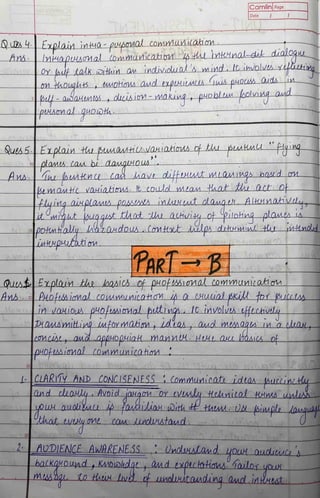 Camlin Page
Date / /
Ques 4. Explain intra-personal communication
Ans. Intrapersonal communication is the internal-dit dialogue
or self talk within an individual's mind. It involves reflecting
on thoughts, emotions and experiences. This process aids in
self-awareness, decision-making, problem solving and
personal growth.
Ques 5. Explain the semantic variations of the sentence "flying
planes can be dangerous".
Ans. The sentence can have different meanings based on
semantic variations. It could mean that the act of
flying airplanes possesses inherent danger. Alternatively,
it might suggest that the activity of piloting planes is
potentially hazardous. Context helps determine the intended
interpretation.
PART → B
Ques 1. Explain the basics of professional communication.
Ans Professional communication is a crucial skill for success
in various professional settings. It involves effectively
transmitting information, ideas, and messages in a clear,
concise, and appropriate manner. Here are basics of
professional communication :
1. CLARITY AND CONCISENESS : Communicate ideas succinctly
and clearly. Avoid jargon or overly technical terms unless
your audience is familiar with it them. Use simple language
that everyone can understand.
2. AUDIENCE AWARENESS : Understand your audience's
background, knowledge, and expectations. Tailor your
message to their level of understanding and interest.